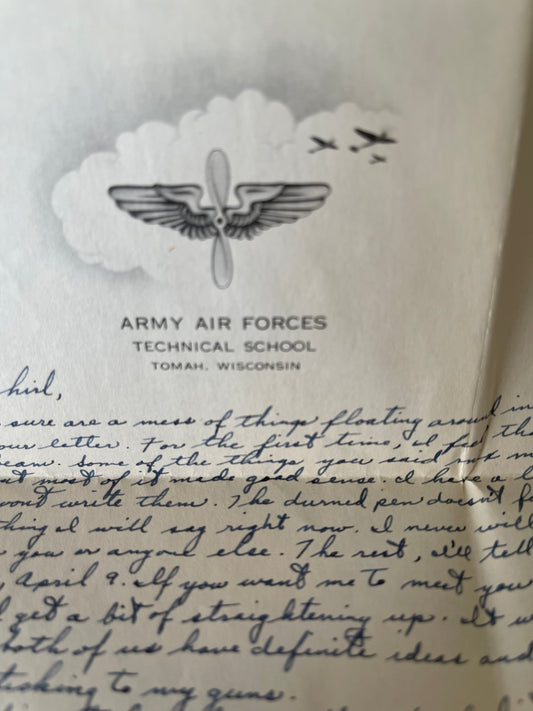 ARMY AIR FORCES
TECHNICAL SCHOOL
TOMAH, WISCONSIN
sure are a mess of things floating around in
our letter. For the first time, I feel
Some of the things you said
most of it made good sense. I have a
wont write them. The durned pen doesn't
thing I will say right now. I never will
you or anyone else. The rest, I'll tell
, April 9. If you want me to meet you
get a bit of straightening up. It
both of us have definite ideas and
sticking to my guns.